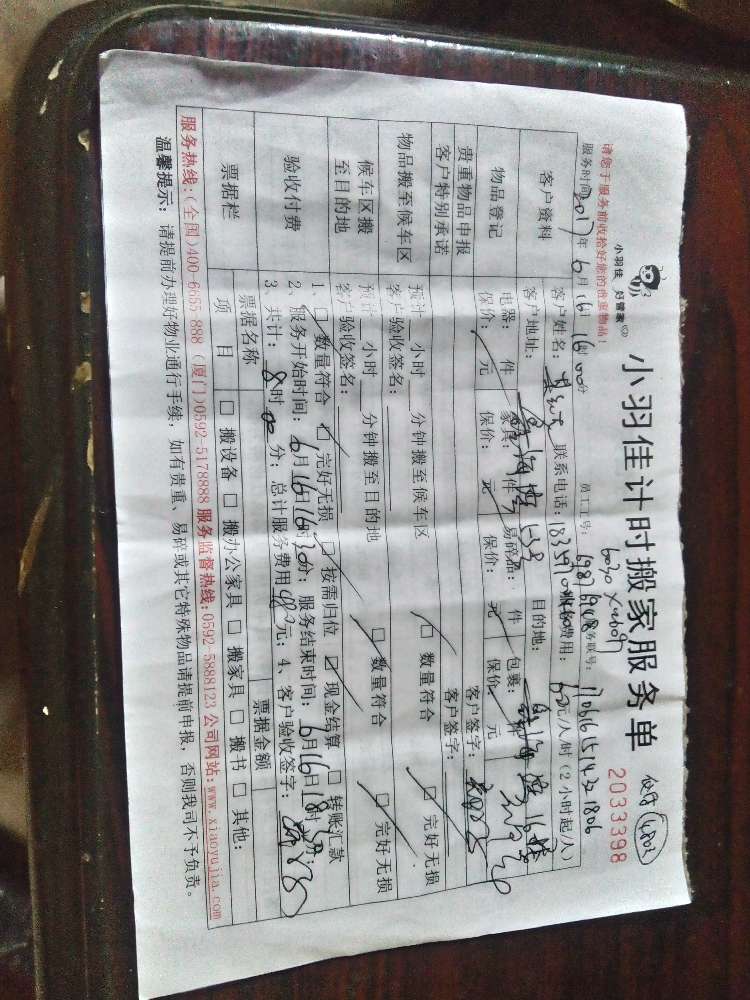 小羽佳 好管家
小羽佳计时搬家服务单
2033398
请您于服务前收拾好您的贵重物品!
员工工号:
服务时间 2017 年 6 月 16 日 16 时 00 分
客户资料
客户姓名: 联系电话: 服务费用: 60 元/人/时 (2小时起/人)
客户地址: 目的地:
物品登记
电器: 件 家具: 件 易碎品: 件 包裹: 件
保价: 元 保价: 元 保价: 元 保价: 元
贵重物品申报
客户特别承诺
客户签字:
客户签字:
物品搬至候车区
预计 小时 分钟搬至候车区 □ 数量符合 □ 完好无损
客户验收签名:
候车区搬
至目的地
预计 小时 分钟搬至目的地 □ 数量符合 □ 完好无损
客户验收签名:
验收付费
1、□ 数量符合 □ 完好无损 □ 按需归位 □ 现金结算 □ 转账汇款
2、服务开始时间: 6月16日16时30分; 服务结束时间: 6月16日18时30分;
3、共计: 8时00分; 总计服务费用480元; 4、客户验收签字:
票据栏
票据名称 票据金额
项目 □ 搬设备 □ 搬办公家具 □ 搬家具 □ 搬书 □ 其他:
服务热线:(全国)400-6655-888 (厦门)0592-5178888 服务监督热线:0592-5888123 公司网站:www.xiaoyujia.com
温馨提示: 请提前办理好物业通行手续, 如有贵重、易碎或其它特殊物品请提前申报, 否则我司不予负责。